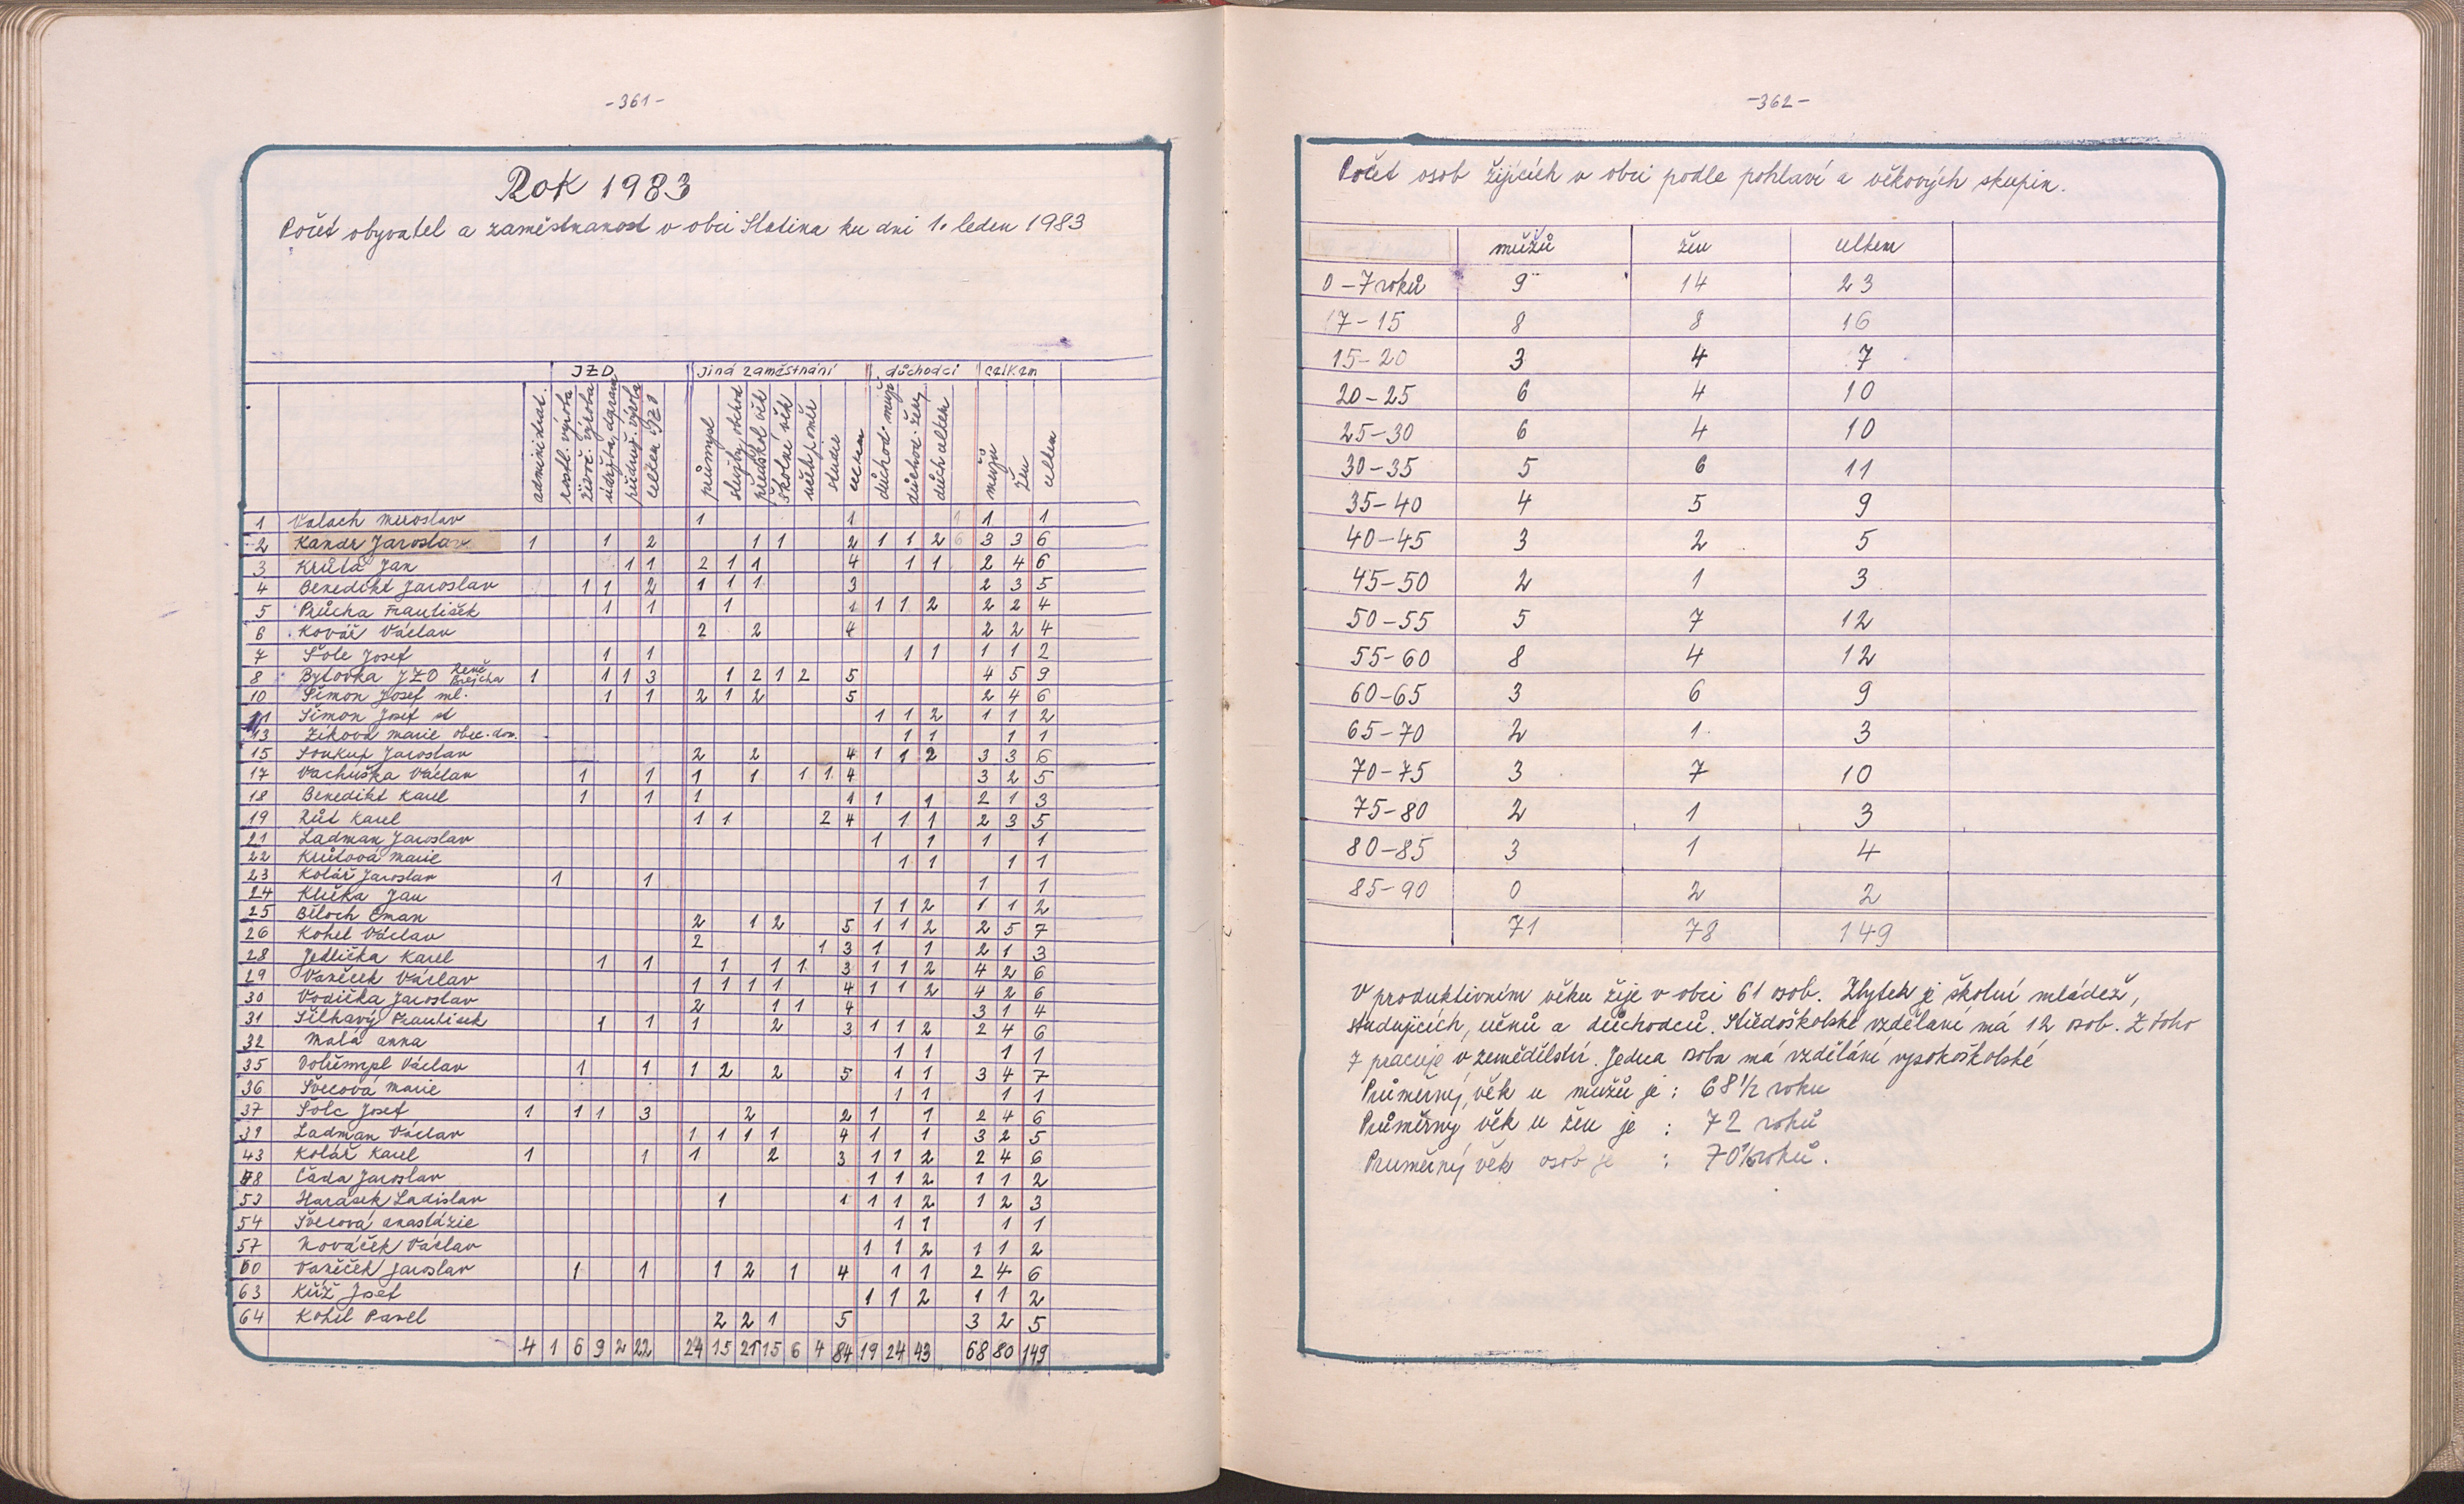 -361-
Rok 1983
Počet obyvatel a zaměstnanost v obci Slatina ku dni 1. leden 1983
JZD Jiná zaměstnání důchodci celkem
administrat. rostl. výroba živoč. výroba údržba, doprava přidruž. výroba celkem JZD průmysl služby, obchod předškol. věk školní věk uč. poměr studie celkem důchod. muži důchod. ženy důch. celkem mužů žen celkem
1 Valach Miroslav 1 1 1 1
2 Kandr Jaroslav 1 1 2 1 1 2 1 1 2 6 3 3 6
3 Krůta Jan 1 1 2 1 1 4 1 1 2 4 6
4 Benedikt Jaroslav 1 1 2 1 1 1 3 2 3 5
5 Průcha František 1 1 1 1 1 1 2 2 2 4
6 Kovář Václav 2 2 4 2 2 4
7 Šole Josef 1 1 1 1 1 1 2
8 Bytovka JZD René Brejcha 1 1 1 3 1 2 1 2 5 4 5 9
10 Šimon Josef ml. 1 1 2 1 2 5 2 4 6
11 Šimon Josef st 1 1 2 1 1 2
13 Žíková Marie obec. dom. 1 1 1 1
15 Soukup Jaroslav 2 2 4 1 1 2 3 3 6
17 Vachuška Václav 1 1 1 1 1 1 4 3 2 5
18 Benedikt Karel 1 1 1 1 1 1 2 1 3
19 Růt Karel 1 1 2 4 1 1 2 3 5
21 Ladman Jaroslav 1 1 1 1
22 Krůtová Marie 1 1 1 1
23 Kolář Jaroslav 1 1 1 1
24 Klička Jan 1 1 2 1 1 2
25 Běloch Eman 2 1 2 5 1 1 2 2 5 7
26 Kohel Václav 2 1 3 1 1 2 1 3
28 Jedlička Karel 1 1 1 1 1 3 1 1 2 4 2 6
29 Vaněček Václav 1 1 1 1 4 1 1 2 4 2 6
30 Vodička Jaroslav 2 1 1 4 3 1 4
31 Šilhavý František 1 1 1 2 3 1 1 2 2 4 6
32 Malá Anna 1 1 1 1
35 Václav 1 1 1 2 2 5 1 1 3 4 7
36 Švecová Marie 1 1 1 1
37 Šolc Josef 1 1 1 3 2 2 1 1 2 4 6
39 Ladman Václav 1 1 1 1 4 1 1 3 2 5
43 Kolář Karel 1 1 1 2 3 1 1 2 2 4 6
48 Čada Jaroslav 1 1 2 1 1 2
53 Harásek Ladislav 1 1 1 1 2 1 2 3
54 Švecová Anastázie 1 1 1 1
57 Nováček Václav 1 1 2 1 1 2
60 Vaněček Jaroslav 1 1 1 2 1 4 1 1 2 4 6
63 Kříž Josef 1 1 2 1 1 2
64 Kohel Pavel 2 2 1 5 3 2 5
4 1 6 9 2 22 24 15 21 15 6 4 84 19 24 43 68 80 149
-362-
Počet osob žijících v obci podle pohlaví a věkových skupin.
mužů žen celkem
0-7 roků 9 14 23
7-15 8 8 16
15-20 3 4 7
20-25 6 4 10
25-30 6 4 10
30-35 5 6 11
35-40 4 5 9
40-45 3 2 5
45-50 2 1 3
50-55 5 7 12
55-60 8 4 12
60-65 3 6 9
65-70 2 1 3
70-75 3 7 10
75-80 2 1 3
80-85 3 1 4
85-90 0 2 2
71 78 149
V produktivním věku žije v obci 61 osob. Zbytek je školní mládež,
studujících, učnů a důchodců. Středoškolské vzdělaní má 12 osob. Z toho
7 pracuje v zemědělství. Jedna osoba má vzdělání vysokoškolské
Průměrný věk u mužů je : 68 1/2 roku
Průměrny věk u žen je : 72 roků
Pruměrný věk osob je : 70 1/2 roků.